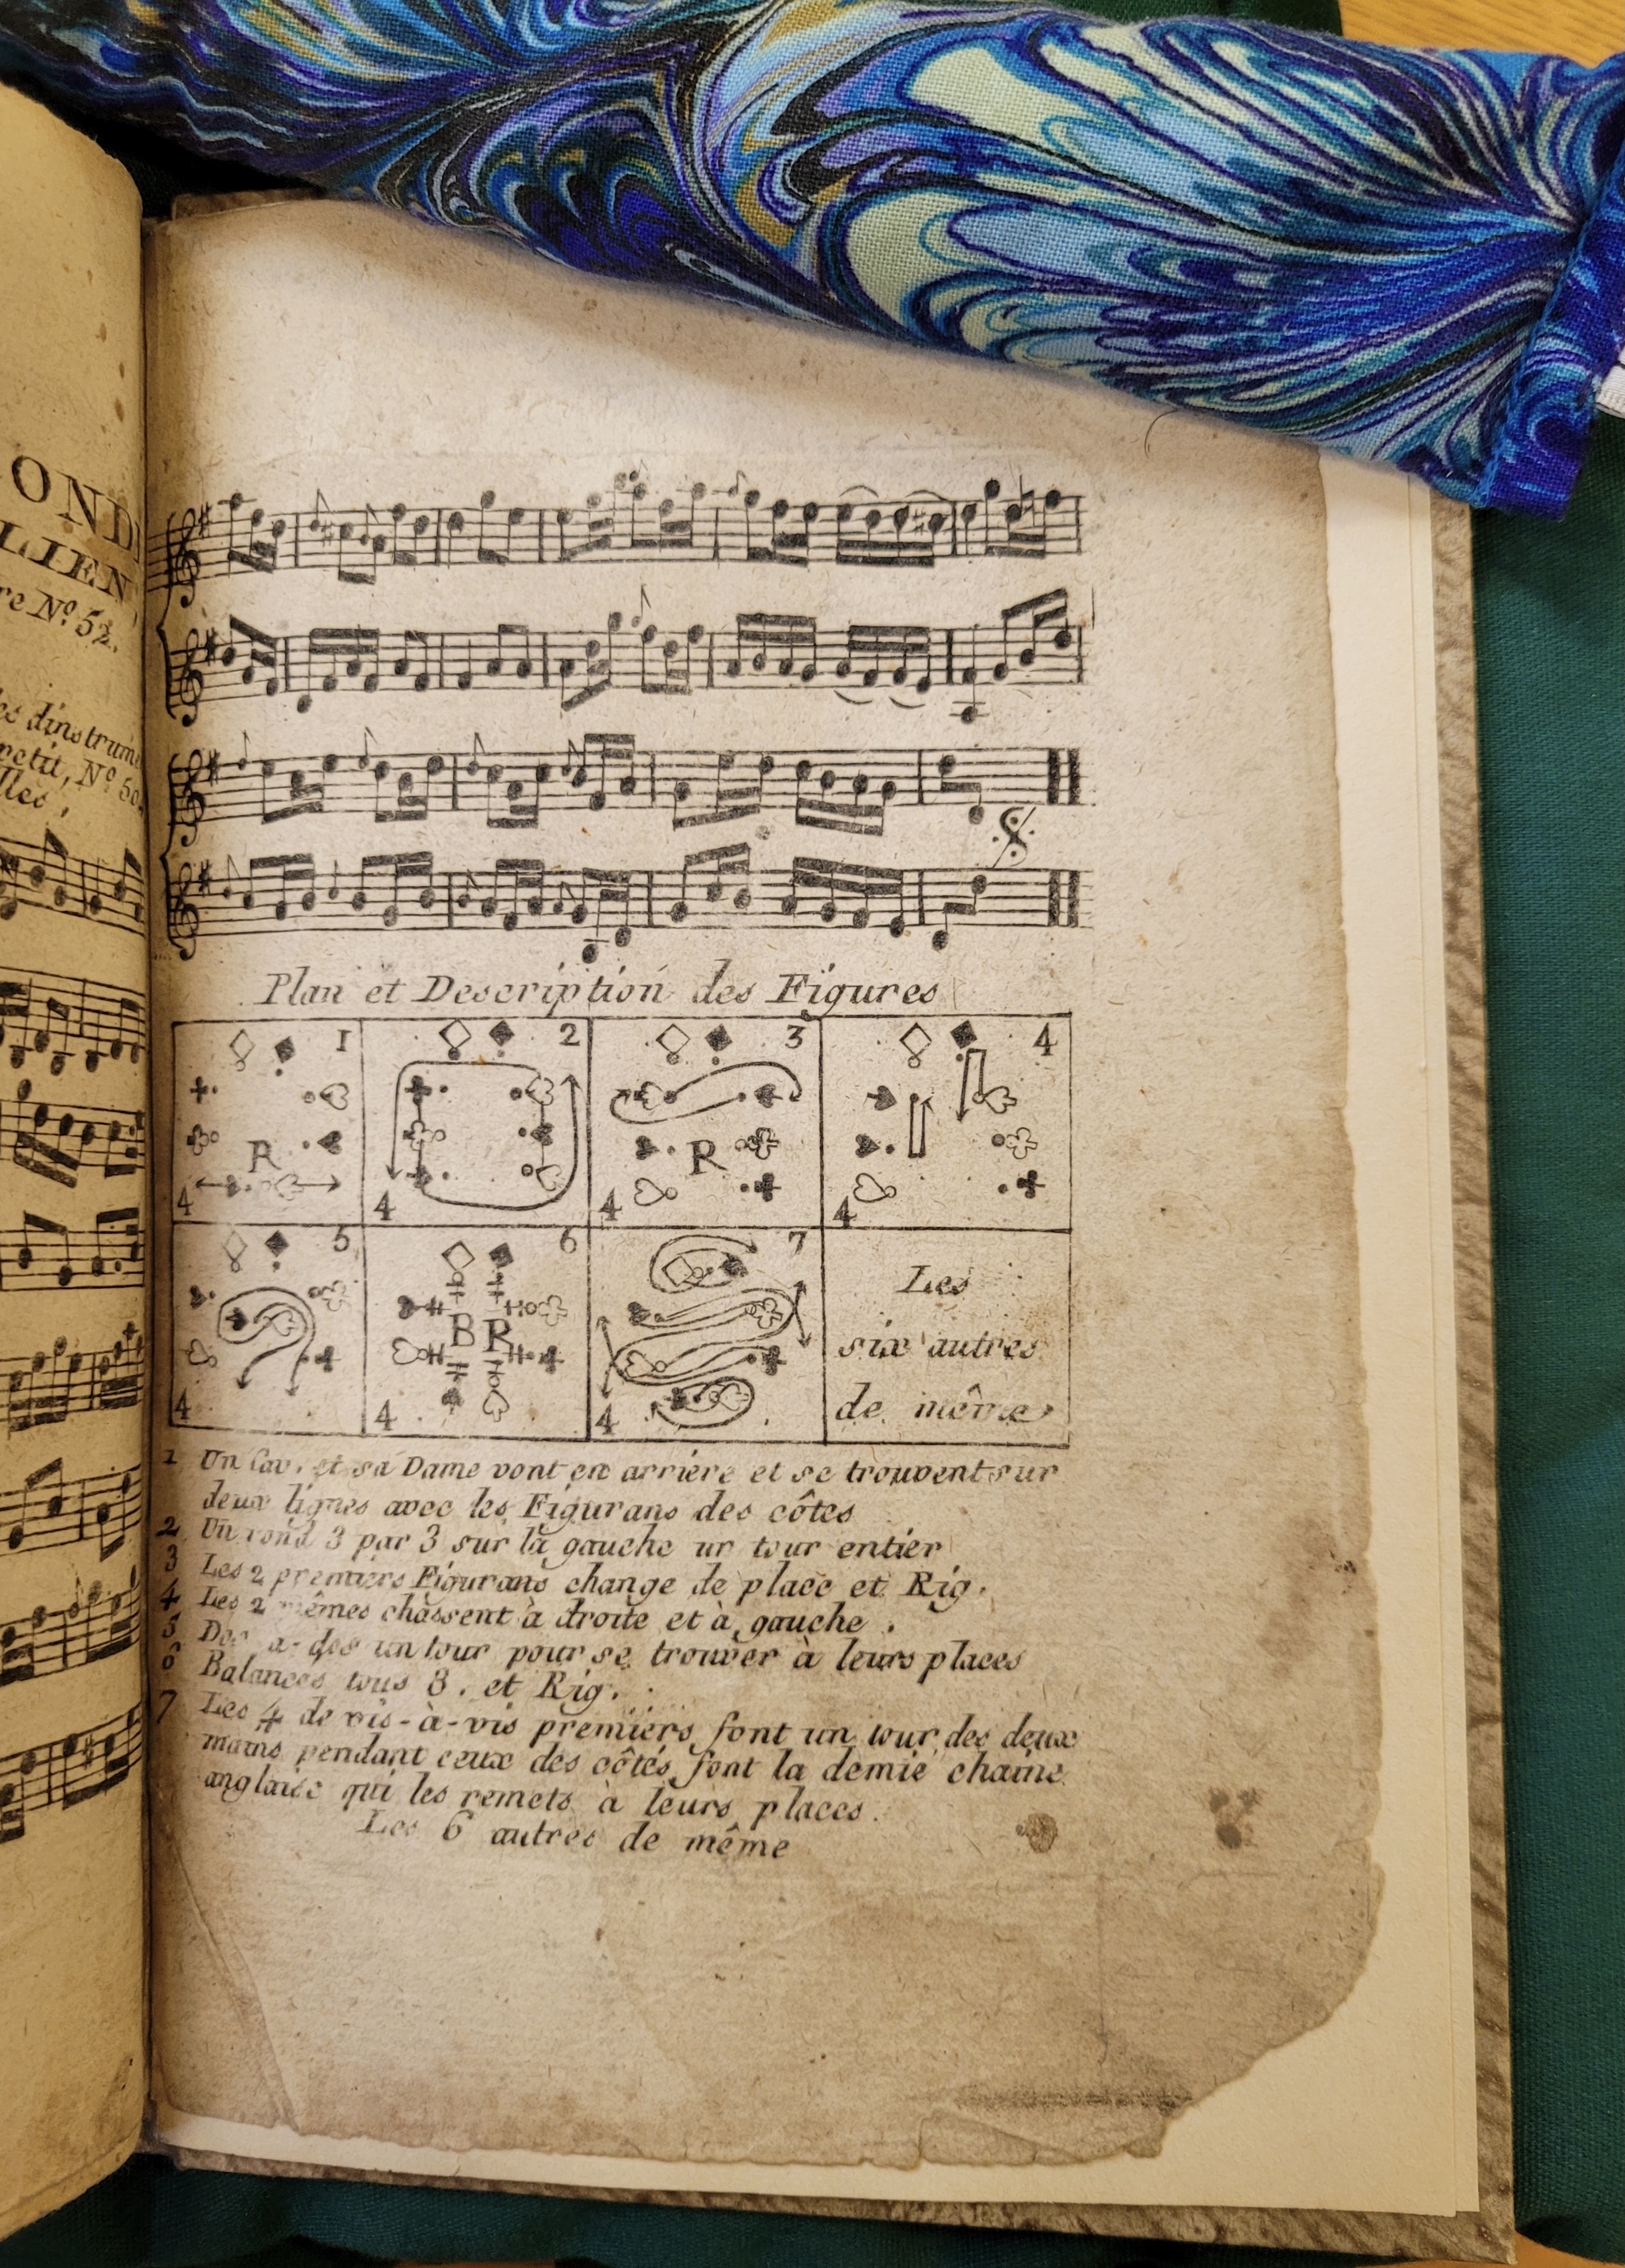 OND
LIEN
re Nº 52.
es dinstrume
petit, Nº 50.
lles,
Plan et Description des Figures
1 2 3 4
R R
4 4 4 4
5 6 7
B R
Les
six autres
de même
4 4 4
1 Un Cav. et sa Dame vont en arriere et se trouvent sur
deux lignes avec les Figurans des côtes
2 Un rond 3 par 3 sur la gauche un tour entier
3 Les 2 premiers Figurans change de place et Rig.
4 Les 2 mêmes chassent à droite et à gauche.
5 a-dos un tour pour se trouver à leurs places
6 Balances tous 8. et Rig.
7 Les 4 de vis-à-vis premiers font un tour des deux
mains pendant ceux des côtés font la demie chaine
anglaise qui les remets à leurs places.
Les 6 autres de même